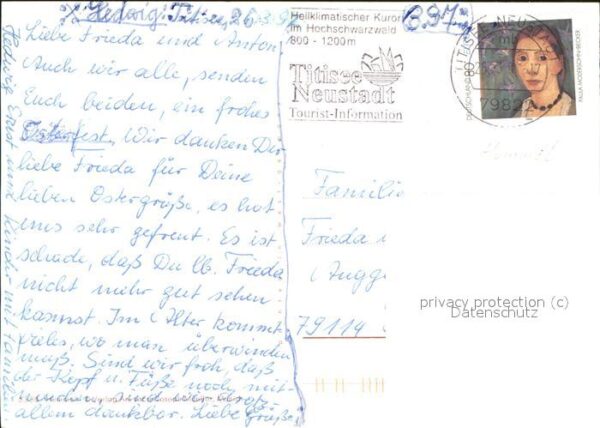 Hedwig: Titisee, 26.3.97
Liebe Frieda und Anton!
Auch wir alle, senden
Euch beiden, ein frohes
Osterfest. Wir danken Dir
liebe Frieda für Deine
lieben Ostergrüße, es hat
uns sehr gefreut. Es ist
schade, daß Du lb. Frieda
nicht mehr gut sehen
kannst. Im Alter kommt
vieles, wo man überwinden
muß. Sind wir froh, daß
der Kopf u. Füße noch mit-
sind wir Gott
allem dankbar. Liebe Grüße
Hedwig Ernst und Kinder mit Familien
Heilklimatischer Kurort
im Hochschwarzwald
800 - 1200m
Titisee
Neustadt
Tourist-Information
TITISEE-NEUSTADT
DEUTSCHLAND 80
PAULA MODERSOHN-BECKER
Familie
Frieda
79114
privacy protection (c)
Datenschutz